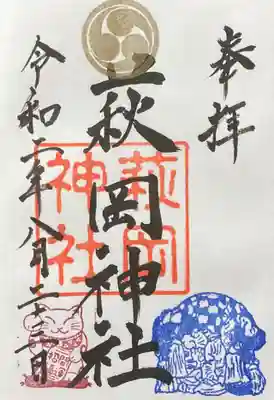 奉拝
萩岡神社
萩岡
神社
令和二年八月二十二日